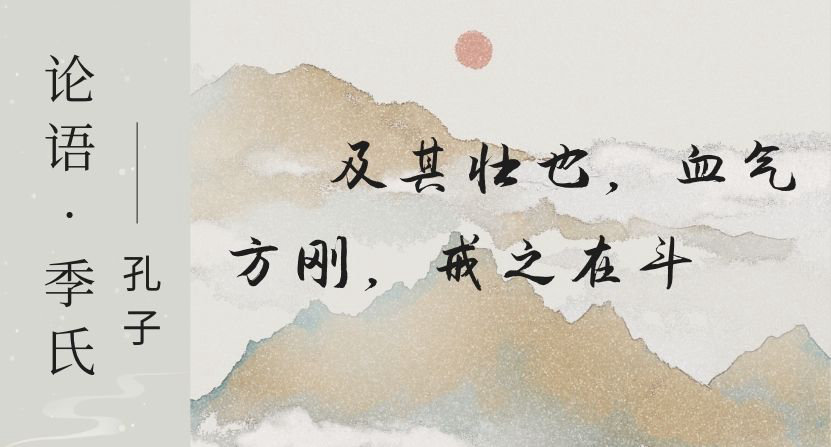 论语·季氏
——孔子
及其壮也，血气
方刚，戒之在斗